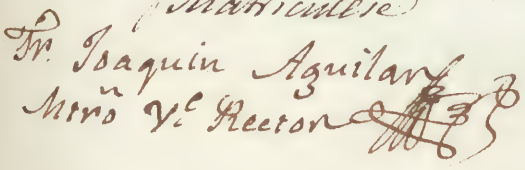 Matriculese
Fr. Joaquin Aguilar
Mtrõ Vᵉ Rector